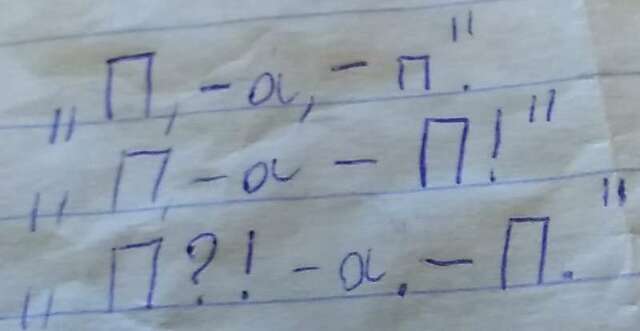 „П, – а, – п."
„П, – а – П!"
„П?! – а. – П."